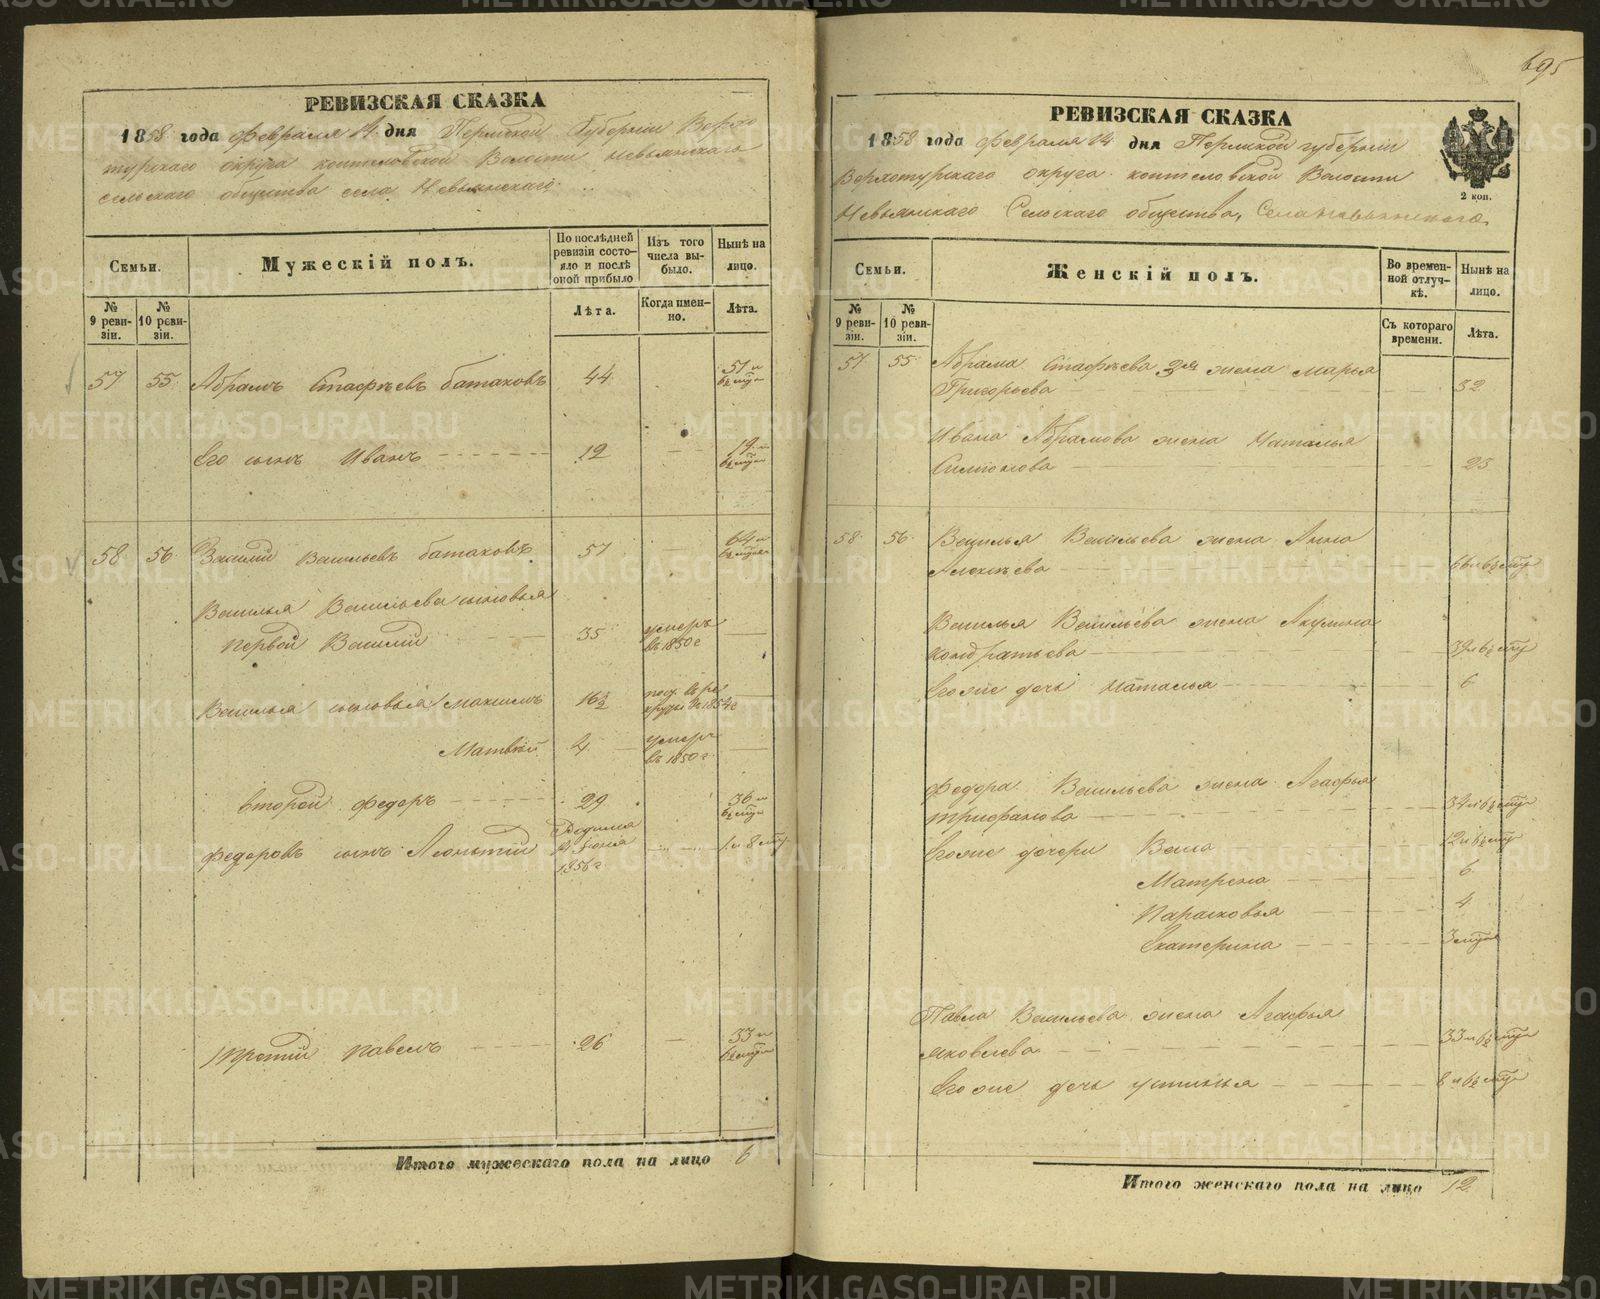 РЕВИЗСКАЯ СКАЗКА
1858 года февраля 14 дня Пермской Губернии Верхо
турскаго округа коптеловской Волости невьянскаго
сельскаго общества села Невьянскаго.
Семьи.
Мужескій полъ.
По послѣдней ревизіи состо-
яло и послѣ оной прибыло
Изъ того числа вы-
было.
Нынѣ на лицо.
№ 9 реви-
зіи.
№ 10 реви-
зіи.
Лѣта.
Когда имен-
но.
Лѣта.
57 55 Абрамъ Стафѣевъ батаковъ 44 51 и
Его сынъ Иванъ 12 19 и
58 56 Василий Васильевъ батаковъ 57 64 и
Василья Васильева сыновья
первой Василий 35 умеръ
въ 1850 г
Василья сыновья Максимъ 16½ 1854 г
Матвѣй 4 умеръ
въ 1850 г.
второй федоръ 29 36 и
федоровъ сынъ Леонтий
1856 г
1 и 8
третий павелъ 26 33 и
Итого мужескаго пола на лицо 6
695
РЕВИЗСКАЯ СКАЗКА
1858 года февраля 14 дня Пермской губернии
Верхотурскаго округа коптеловской Волости
Невьянскаго Сельскаго общества, Села невьянскаго
2 коп.
Семьи.
Женскій полъ.
Во времен-
ной отлуч-
кѣ.
Нынѣ на лицо.
№ 9 реви-
зіи.
№ 10 реви-
зіи.
Съ котораго времени.
Лѣта.
57 55 Абрама Стафѣева 3я жена марья
Григорьева 32
Ивана Абрамова жена Наталья
Симионова 25
58 56 Василья Васильева жена Анна
Алексѣева
Василья Васильева жена Акулина
кондратьева
Егоже дочь Наталья 6
федора Васильева жена Агафья
трифанова
Егоже дочери
Матрена 6
Парасковья 4
Екатерина
Павла Васильева жена Агафья
яковлева
Егоже дочь устинья
Итого женскаго пола на лицо 12
METRIKI.GASO-URAL.RU